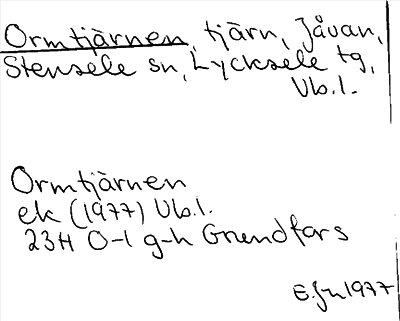 Ormtjärnen, tjärn, Jåvan,
Stensele sn, Lycksele tg,
Vb.l.
Ormtjärnen
ek (1977) Vb.l.
23H 0-1 g-h Grundfors
1977